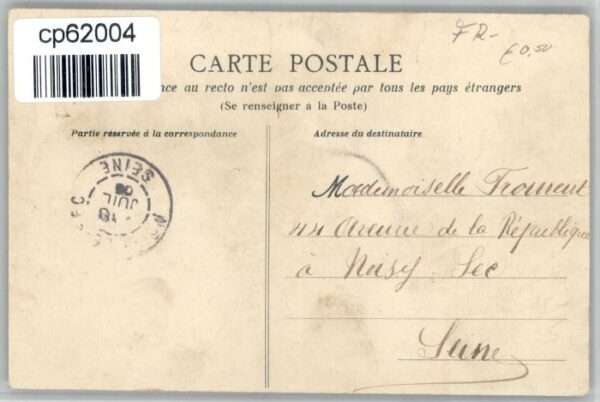 cp62004
FR-
€0,50
CARTE POSTALE
nce au recto n'est pas acceptée par tous les pays étrangers
(Se renseigner a la Poste)
Partie réservée à la correspondance
Adresse du destinataire
SEINE
JUIL
Mademoiselle Froment
44 Avenue de la République
à Noisy Sec
Seine